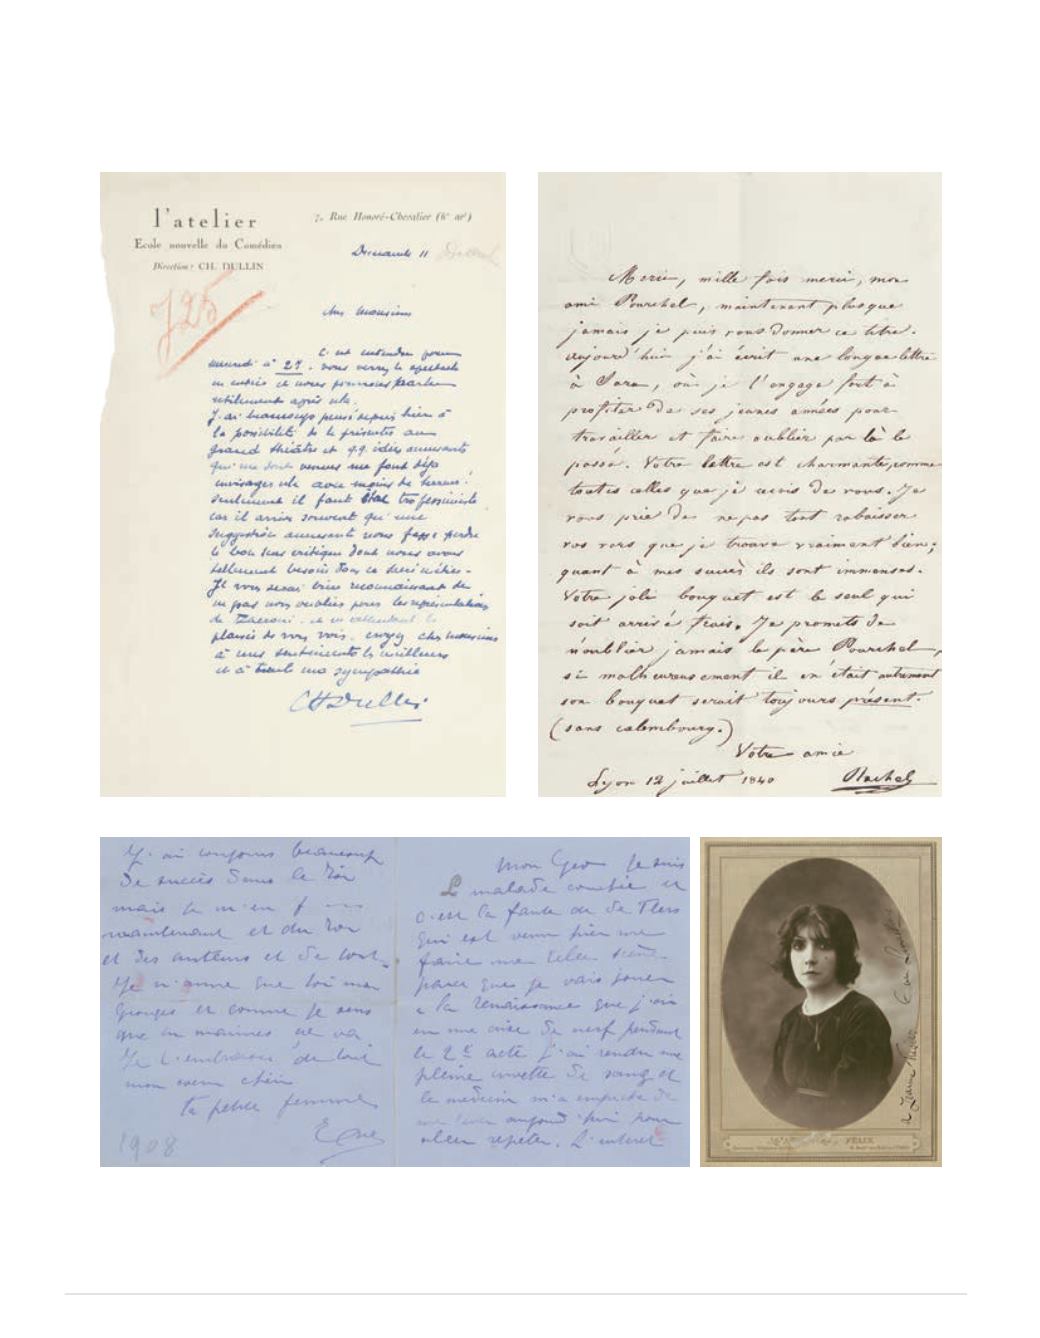 l'atelier
Ecole nouvelle du Comédien
Direction: CH. DULLIN
7, Rue Honoré-Chevalier (6e arr)
Dimanche 11
725
cher Monsieur
C'est entendu pour
mercredi à 21. vous verrez le spectacle
en entier et nous pourrons parler
utilement après cela.
J'ai beaucoup pensé depuis hier à
la possibilité de le présenter au
grand théâtre et q.q. idées amusantes
qui me sont venues me font déjà
envisager cela avec moins de terreur!
Seulement il faut être très pessimiste
car il arrive souvent qu'une
suggestion amusante nous fasse perdre
le bon sens critique dont nous avons
tellement besoin dans ce sacré métier.
Je vous serai bien reconnaissant de
ne pas nous oublier pour les représentations
de Zacconi. et en attendant le
plaisir de vous voir. croyez cher monsieur
à mes sentiments les meilleurs
et à toute ma sympathie
CH Dullin
Merci, mille fois merci, mon
ami Pourchel, maintenant plus que
jamais je puis vous donner ce titre.
aujourd'hui j'ai écrit une longue lettre
à Sara, où je l'engage fort à
profiter de ses jeunes années pour
travailler et faire oublier par là le
passé. Votre lettre est charmante, comme
toutes celles que je reçois de vous. Je
vous prie de ne pas tant rabaisser
vos vers que je trouve vraiment bien;
quant à mes succès ils sont immenses.
Votre joli bouquet est le seul qui
soit arrivé frais. Je promets de
n'oublier jamais le père Pourchel,
si malheureusement il en était autrement
son bouquet serait toujours présent.
(sans calembourg.)
Votre amie
Lyon 12 juillet 1840
Rachel
J'ai toujours beaucoup
de succès dans le Roi
mais je m'en f
maintenant et du Roi
et des auteurs et de tout.
Je n'aime que toi mon
Georges et comme je sens
que tu
Je t'embrasse de tout
mon coeur chéri
ta petite femme
Eve
1908
Mon Geo Je suis
malade couchée et
c'est la faute de de Flers
qui est venu hier me
faire une telle scène
parce que je vais jouer
à la Renaissance que j'ai
eu une crise de nerf pendant
le 2e acte j'ai rendu une
pleine cuvette de sang et
le médecin m'a empêchée de
me lever aujourd'hui pour
aller répéter.
à Jeanne
FÉLIX